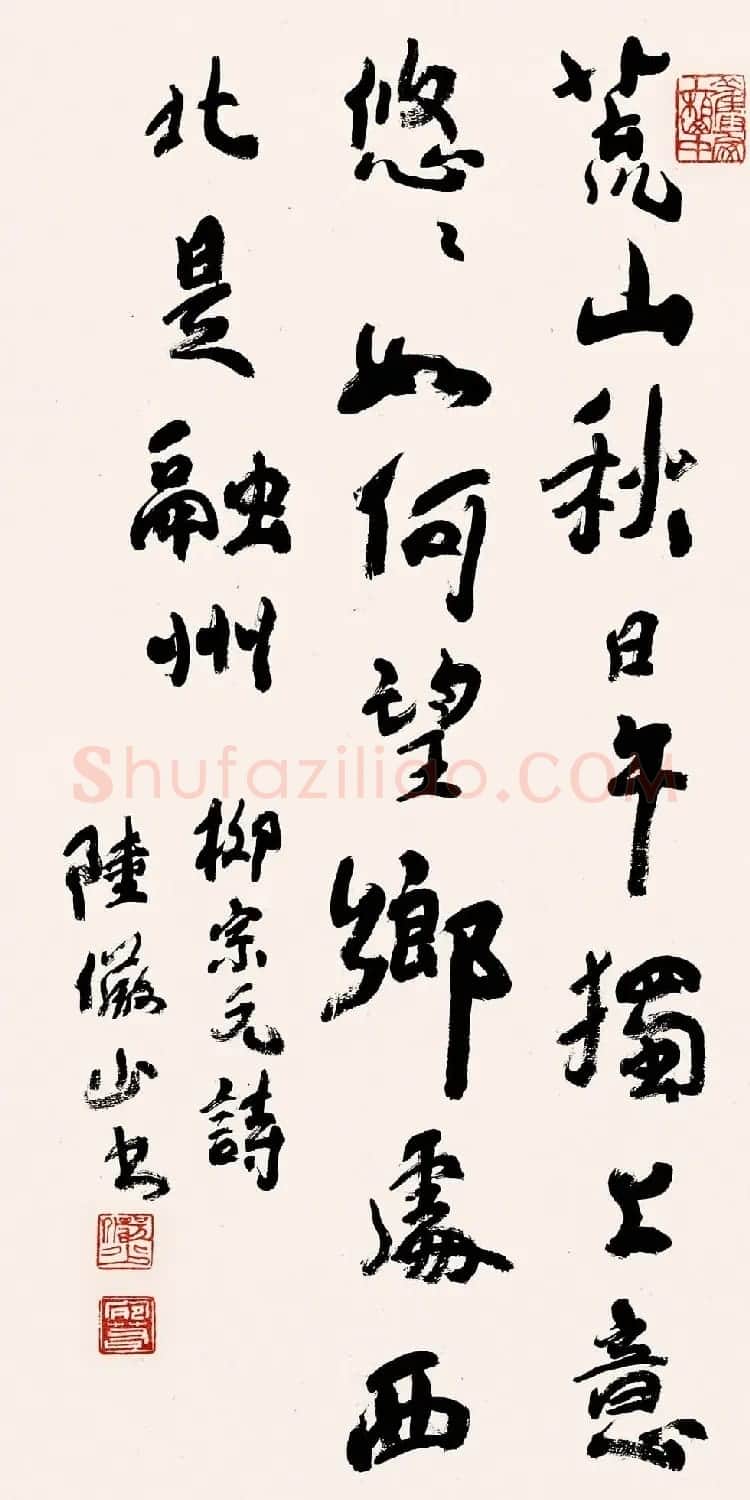 荒山秋日午獨上意
悠〻如何望鄉處西
北是融州
柳宗元詩
陸儼山書
ShufaziliaO.COM